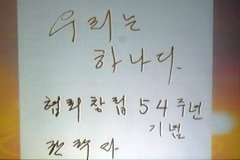 우리는
하나다.
협회창립 54주년
기념